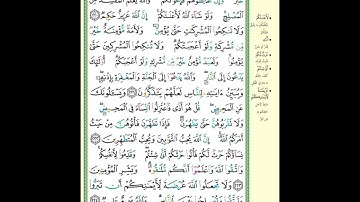 خَيْرٌ وَإِن تُخَالِطُوهُمْ فَإِخْوَٰنُكُمْ وَٱللَّهُ يَعْلَمُ ٱلْمُفْسِدَ مِنَ
ٱلْمُصْلِحِ وَلَوْ شَآءَ ٱللَّهُ لَأَعْنَتَكُمْ إِنَّ ٱللَّهَ عَزِيزٌ حَكِيمٌ ٢٢٠
وَلَا تَنكِحُوا۟ ٱلْمُشْرِكَٰتِ حَتَّىٰ يُؤْمِنَّ وَلَأَمَةٌ مُّؤْمِنَةٌ خَيْرٌ
مِّن مُّشْرِكَةٍ وَلَوْ أَعْجَبَتْكُمْ وَلَا تُنكِحُوا۟ ٱلْمُشْرِكِينَ حَتَّىٰ
يُؤْمِنُوا۟ وَلَعَبْدٌ مُّؤْمِنٌ خَيْرٌ مِّن مُّشْرِكٍ وَلَوْ أَعْجَبَكُمْ أُو۟لَٰٓئِكَ
يَدْعُونَ إِلَى ٱلنَّارِ وَٱللَّهُ يَدْعُوٓا۟ إِلَى ٱلْجَنَّةِ وَٱلْمَغْفِرَةِ بِإِذْنِهِۦ
وَيُبَيِّنُ ءَايَٰتِهِۦ لِلنَّاسِ لَعَلَّهُمْ يَتَذَكَّرُونَ ٢٢١ وَيَسْـَٔلُونَكَ
عَنِ ٱلْمَحِيضِ قُلْ هُوَ أَذًى فَٱعْتَزِلُوا۟ ٱلنِّسَآءَ فِى ٱلْمَحِيضِ
وَلَا تَقْرَبُوهُنَّ حَتَّىٰ يَطْهُرْنَ فَإِذَا تَطَهَّرْنَ فَأْتُوهُنَّ مِنْ حَيْثُ
أَمَرَكُمُ ٱللَّهُ إِنَّ ٱللَّهَ يُحِبُّ ٱلتَّوَّٰبِينَ وَيُحِبُّ ٱلْمُتَطَهِّرِينَ ٢٢٢
نِسَآؤُكُمْ حَرْثٌ لَّكُمْ فَأْتُوا۟ حَرْثَكُمْ أَنَّىٰ شِئْتُمْ وَقَدِّمُوا۟ لِأَنفُسِكُمْ
وَٱتَّقُوا۟ ٱللَّهَ وَٱعْلَمُوٓا۟ أَنَّكُم مُّلَٰقُوهُ وَبَشِّرِ ٱلْمُؤْمِنِينَ
٢٢٣ وَلَا تَجْعَلُوا۟ ٱللَّهَ عُرْضَةً لِّأَيْمَٰنِكُمْ أَن تَبَرُّوا۟